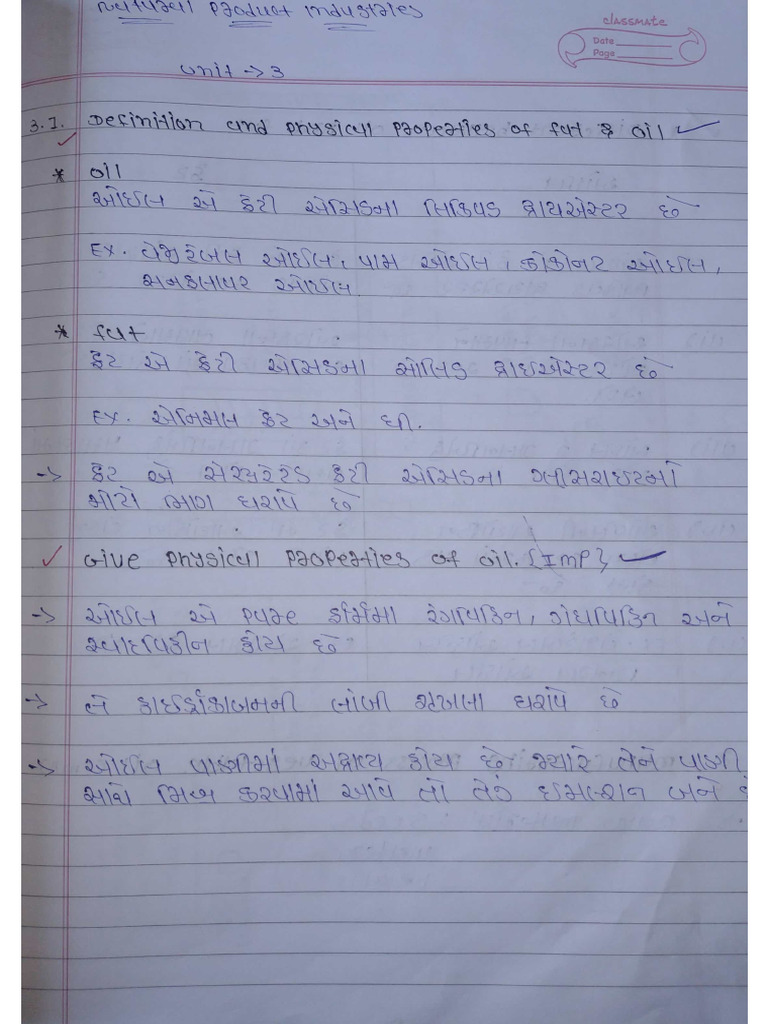 Natural Product Industries
classmate
Date
Page
Unit → 3
3.1. Definition and physical properties of fat & oil
* oil
ઓઈલ એ ફેટી એસિડના લિક્વિડ ટ્રાયએસ્ટર છે
Ex. વેજીટેબલ ઓઈલ, પામ ઓઈલ, કોકોનટ ઓઈલ,
સનફલાવર ઓઈલ.
* fat
ફેટ એ ફેટી એસિડના સોલિડ ટ્રાઇએસ્ટર છે
Ex. એનિમલ ફેટ અને ઘી.
→ ફેટ એ સેચ્યુરેટેડ ફેટી એસિડના ગ્લીસરાઇટનો
મોટો ભાગ ધરાવે છે
Give physical properties of oil. {IMP}
→ ઓઈલ એ pure ફોર્મમા રંગવિહિન, ગંધવિહિન અને
સ્વાદવિહીન હોય છે
→ તે હાઈડ્રોકાબનની લાંબી શૃંખલા ધરાવે છે
→ ઓઈલ પાણીમાં અદ્રાવ્ય હોય છે જ્યારે તેને પાણી
સાથે મિક્ષ કરવામાં આવે તો તેનું ઇમલ્શન બને